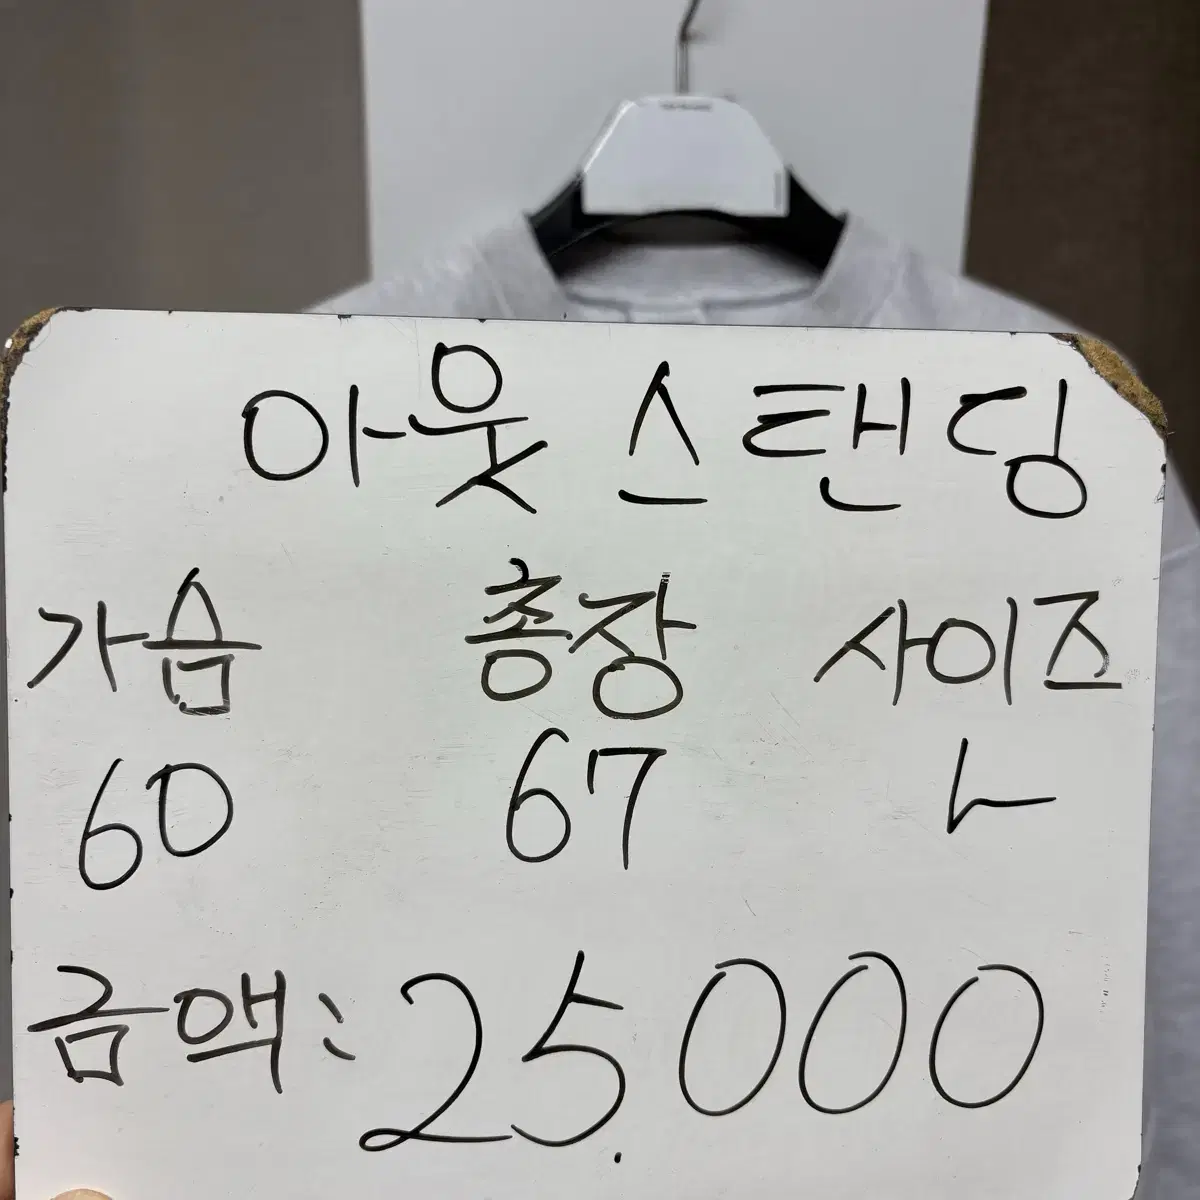 아웃스탠딩
가슴 총장 사이즈
60 67 L
금액: 25.000